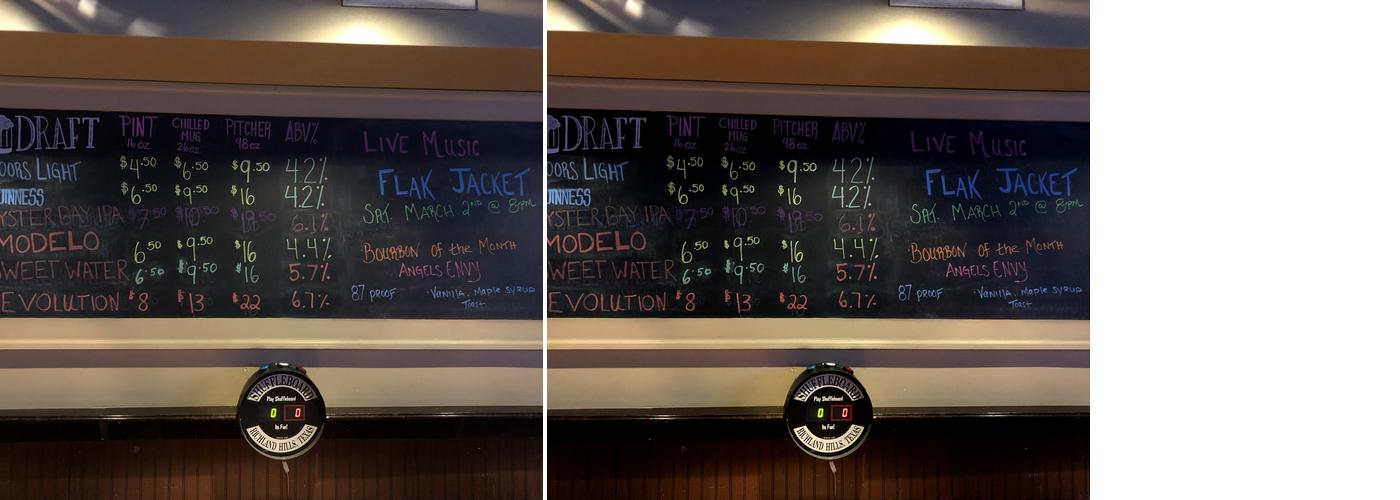 DRAFT PINT 16oz. CHILLED MUG 26oz PITCHER 48oz. ABV%
OORS LIGHT $4.50 $6.50 $9.50 4.2%
UINNESS $6.50 $9.50 $16 4.2%
YSTER BAY IPA $7.50 $10.50 $18.50 6.1%
MODELO 6.50 $9.50 $16 4.4%
WEET WATER 6.50 $9.50 $16 5.7%
EVOLUTION $8 $13 $22 6.7%
LIVE MUSIC
FLAK JACKET
SAT. MARCH 2ND @ 8pm
BOURBON of the MONTH
ANGELS ENVY
87 PROOF · Vanilla, Maple SYRUP
Toast
SHUFFLEBOARD
Play Shuffleboard
0 0
Its Fun!
RICHLAND HILLS, TEXAS
DRAFT PINT 16oz. CHILLED MUG 26oz PITCHER 48oz. ABV%
OORS LIGHT $4.50 $6.50 $9.50 4.2%
UINNESS $6.50 $9.50 $16 4.2%
YSTER BAY IPA $7.50 $10.50 $18.50 6.1%
MODELO 6.50 $9.50 $16 4.4%
WEET WATER 6.50 $9.50 $16 5.7%
EVOLUTION $8 $13 $22 6.7%
LIVE MUSIC
FLAK JACKET
SAT. MARCH 2ND @ 8pm
BOURBON of the MONTH
ANGELS ENVY
87 PROOF · Vanilla, Maple SYRUP
Toast
SHUFFLEBOARD
Play Shuffleboard
0 0
Its Fun!
RICHLAND HILLS, TEXAS